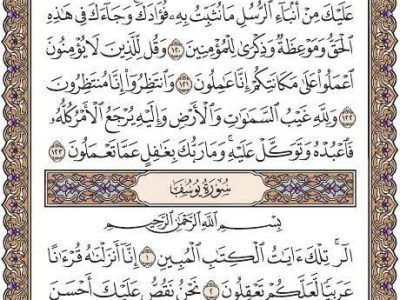 عَلَيْكَ مِنْ أَنۢبَآءِ ٱلرُّسُلِ مَا نُثَبِّتُ بِهِۦ فُؤَادَكَ وَجَآءَكَ فِى هَٰذِهِ
ٱلْحَقُّ وَمَوْعِظَةٌ وَذِكْرَىٰ لِلْمُؤْمِنِينَ ١٢٠ وَقُل لِّلَّذِينَ لَا يُؤْمِنُونَ
ٱعْمَلُوا۟ عَلَىٰ مَكَانَتِكُمْ إِنَّا عَٰمِلُونَ ١٢١ وَٱنتَظِرُوٓا۟ إِنَّا مُنتَظِرُونَ
١٢٢ وَلِلَّهِ غَيْبُ ٱلسَّمَٰوَٰتِ وَٱلْأَرْضِ وَإِلَيْهِ يُرْجَعُ ٱلْأَمْرُ كُلُّهُۥ
فَٱعْبُدْهُ وَتَوَكَّلْ عَلَيْهِ وَمَا رَبُّكَ بِغَٰفِلٍ عَمَّا تَعْمَلُونَ ١٢٣
سُورَةُ يُوسُفَ
بِسْمِ ٱللَّهِ ٱلرَّحْمَٰنِ ٱلرَّحِيمِ
الٓر تِلْكَ ءَايَٰتُ ٱلْكِتَٰبِ ٱلْمُبِينِ ١ إِنَّآ أَنزَلْنَٰهُ قُرْءَٰنًا
عَرَبِيًّا لَّعَلَّكُمْ تَعْقِلُونَ ٢ نَحْنُ نَقُصُّ عَلَيْكَ أَحْسَنَ